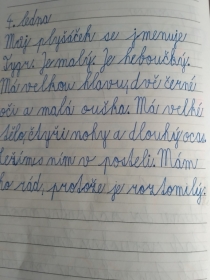 4. ledna
Můj plyšáček se jmenuje
Tygr. Je malý. Je heboučký.
Má velkou hlavu, dvě černé
oči a malá ouška. Má velké
tělo, čtyři nohy a dlouhý ocas.
s ním v posteli. Mám
ho rád, protože je roztomilý.